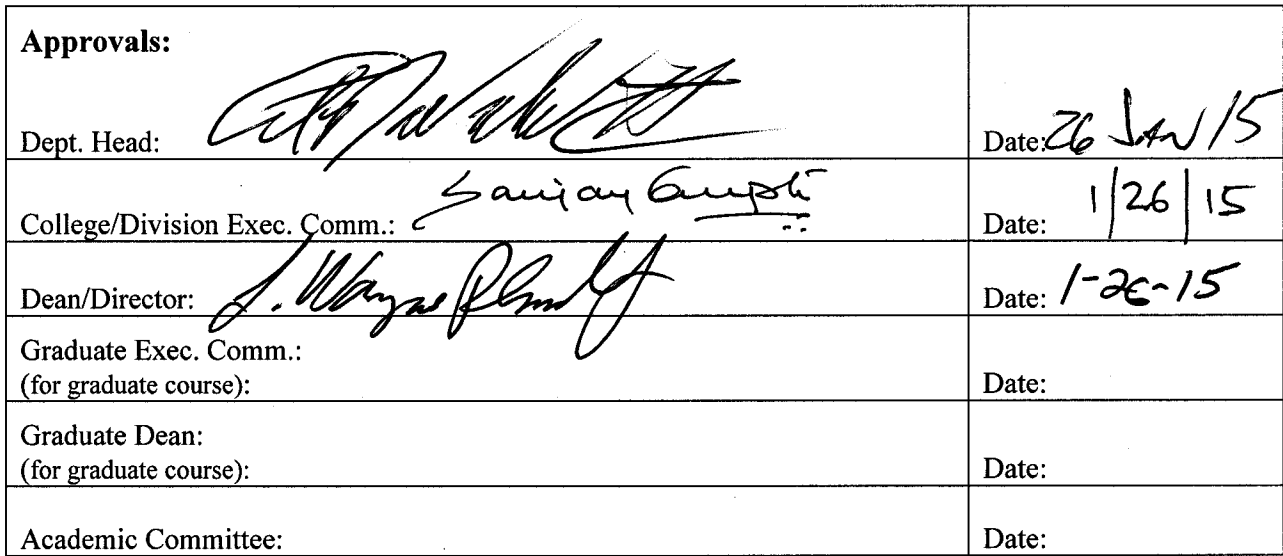 Approvals:
Dept. Head:
Date: 26 JAN 15
College/Division Exec. Comm.: Sanjay Gupta
Date: 1/26/15
Dean/Director: J. Wayne
Date: 1-26-15
Graduate Exec. Comm.:
(for graduate course):
Date:
Graduate Dean:
(for graduate course):
Date:
Academic Committee:
Date: